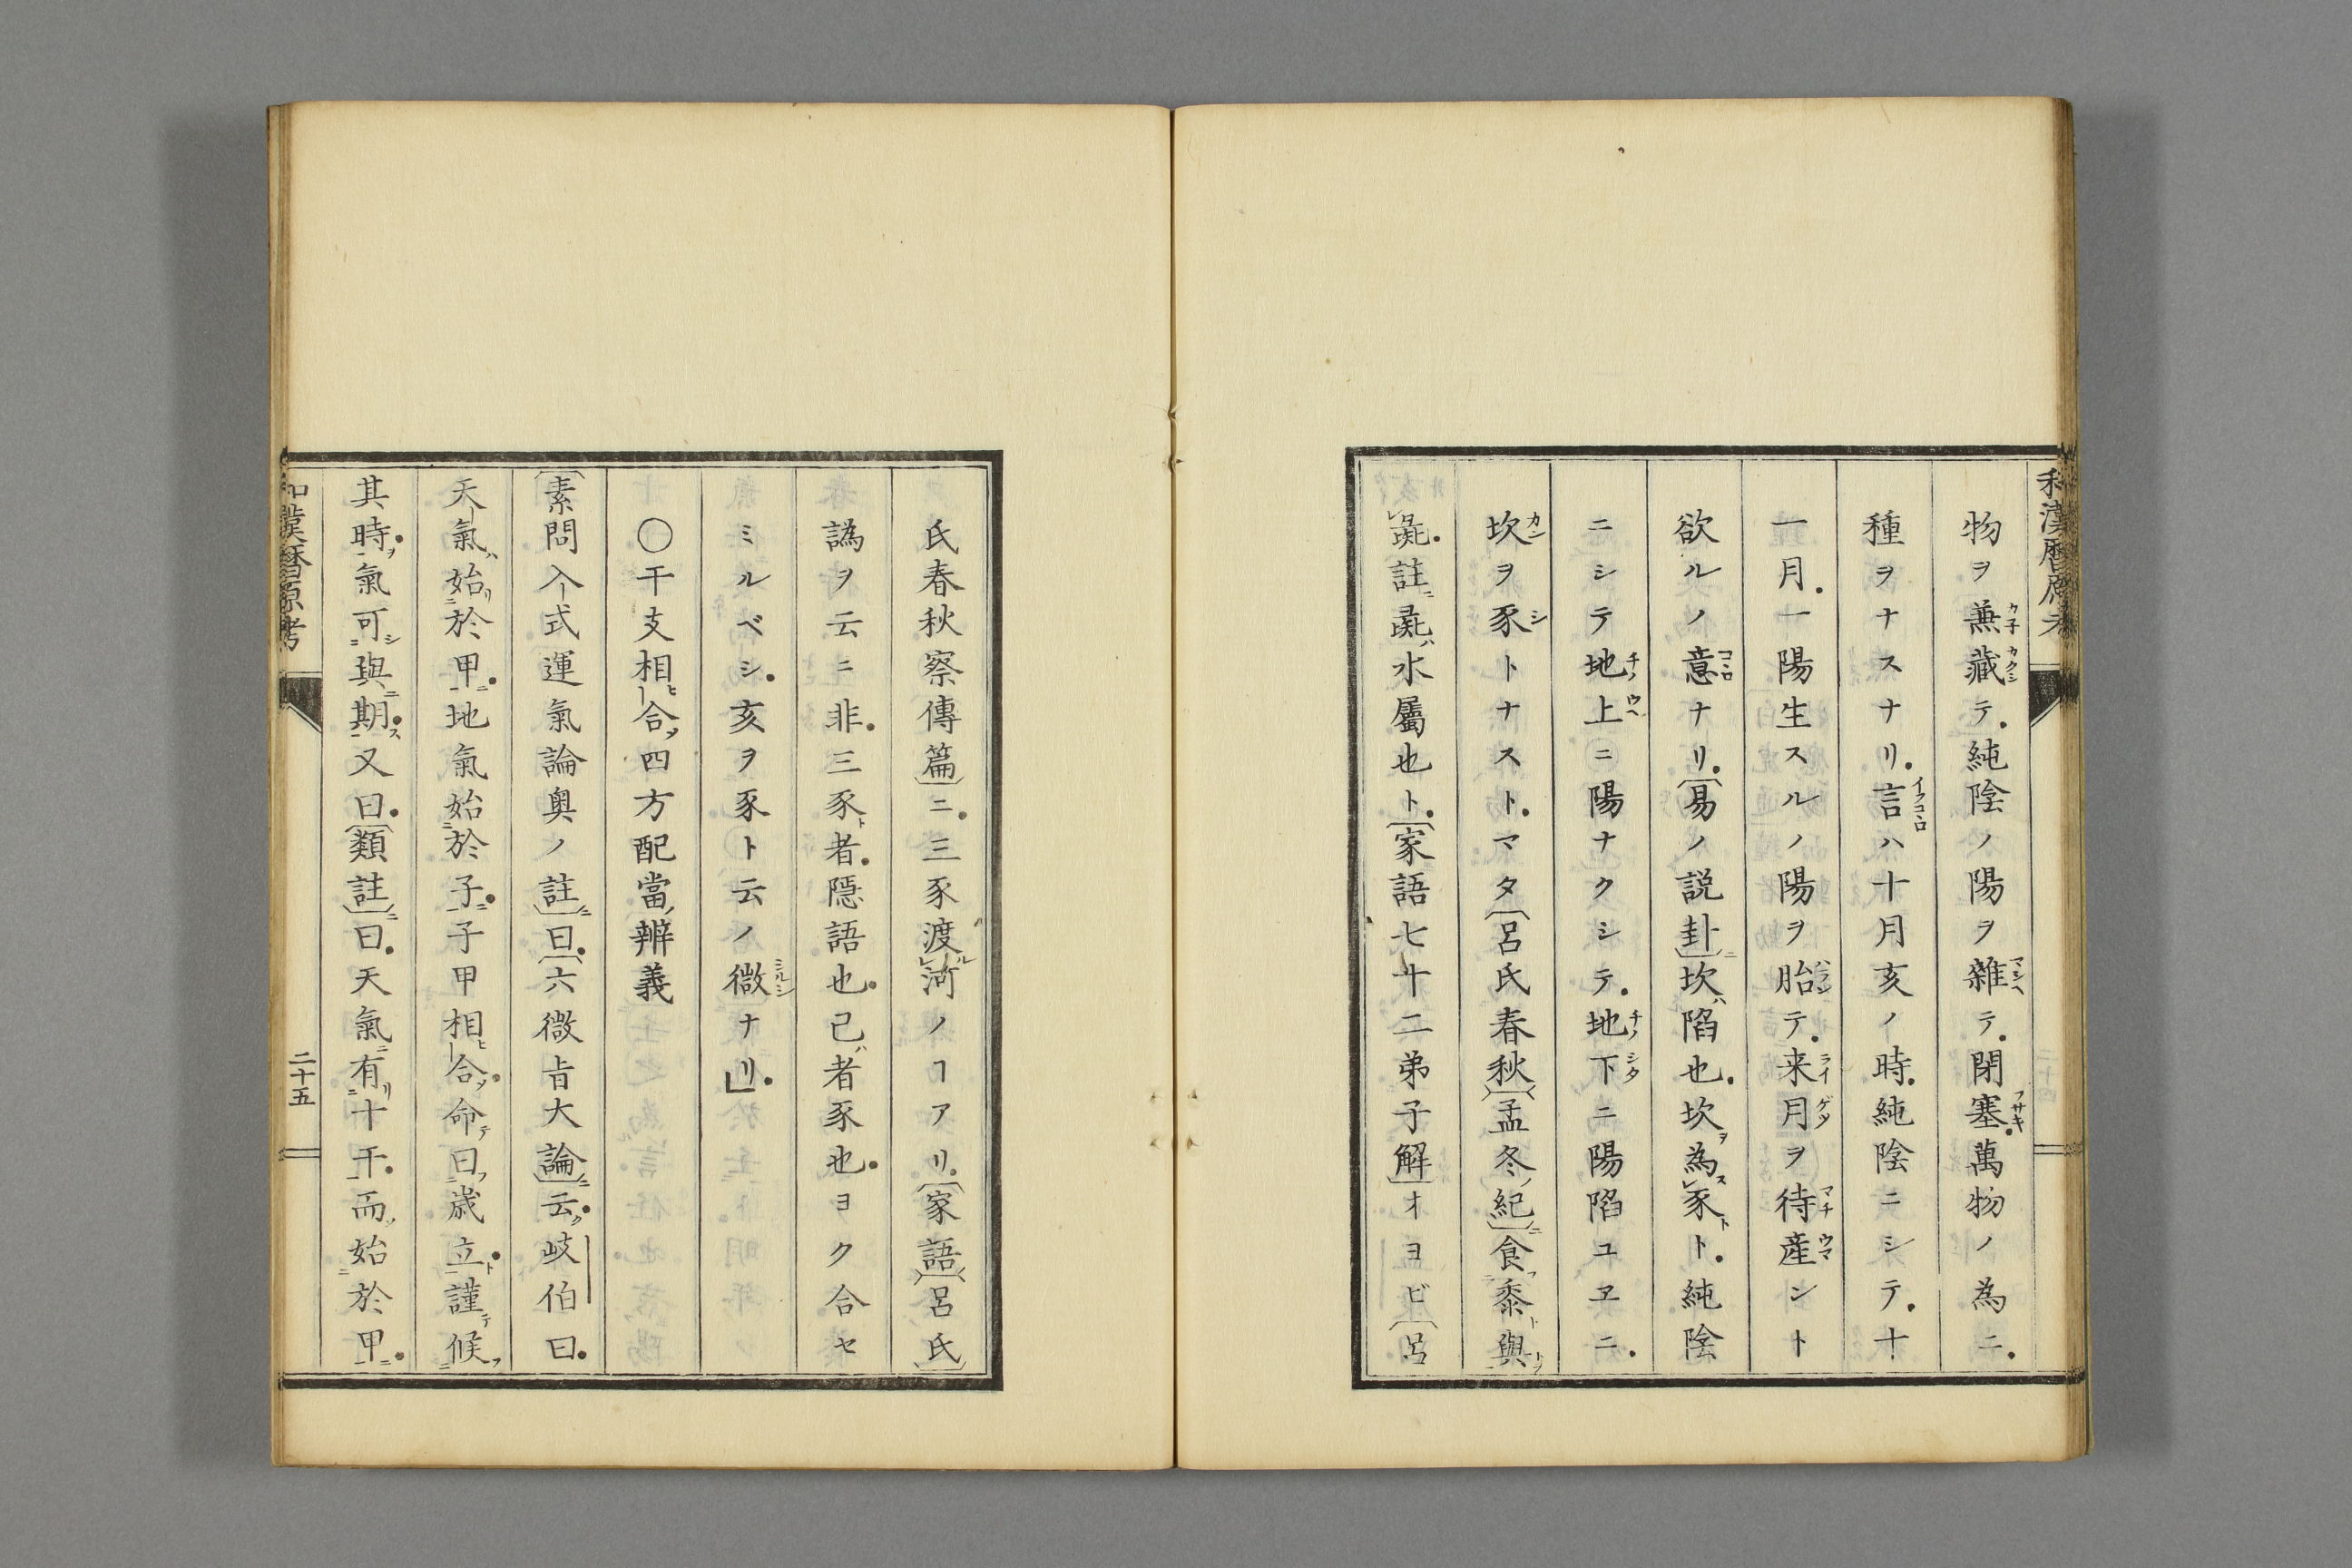 和漢暦原考
物ヲ兼藏テ純陰ノ陽ヲ雜テ閉塞萬物ノ為ニ
種ヲナスナリ言ハ十月亥ノ時純陰ニシテ十
一月一陽生スルノ陽ヲ胎テ来月ヲ待産ント
欲ルノ意ナリ易ノ説卦ニ坎ハ陷也坎ヲ為レス豕トト純陰
ニシテ地上ニ陽ナクシテ地下ニ陽陷ユヱニ
坎ヲ豕トナストマタ呂氏春秋孟冬ノ紀ニ食フ黍ト與トヲ
彘註ニ彘ハ水屬也ト家語七十二弟子解オヨビ呂
氏春秋察傳篇ニ三豕渡ルレ河ノヿアリ家語呂氏
譌ヲ云ニ非三豕ト者隱語也己ハ者豕也ヨク合セ
ミルベシ亥ヲ豕ト云ノ徴ナリ
〇干支相ヒ合フ四方配當ノ辨義
素問入式運氣論奥ノ註ニ曰六微旨大論ニ云ク岐伯曰
天氣ハ始リ於甲ニ地氣始於子ニ子甲相ヒ合フ命テ曰フ歳立ト謹テ候フ
其時ヲ氣可シ與ニ期ス又曰類註ニ曰天氣ニ有リ十干而ノ始於甲
和漢暦原考
二十五